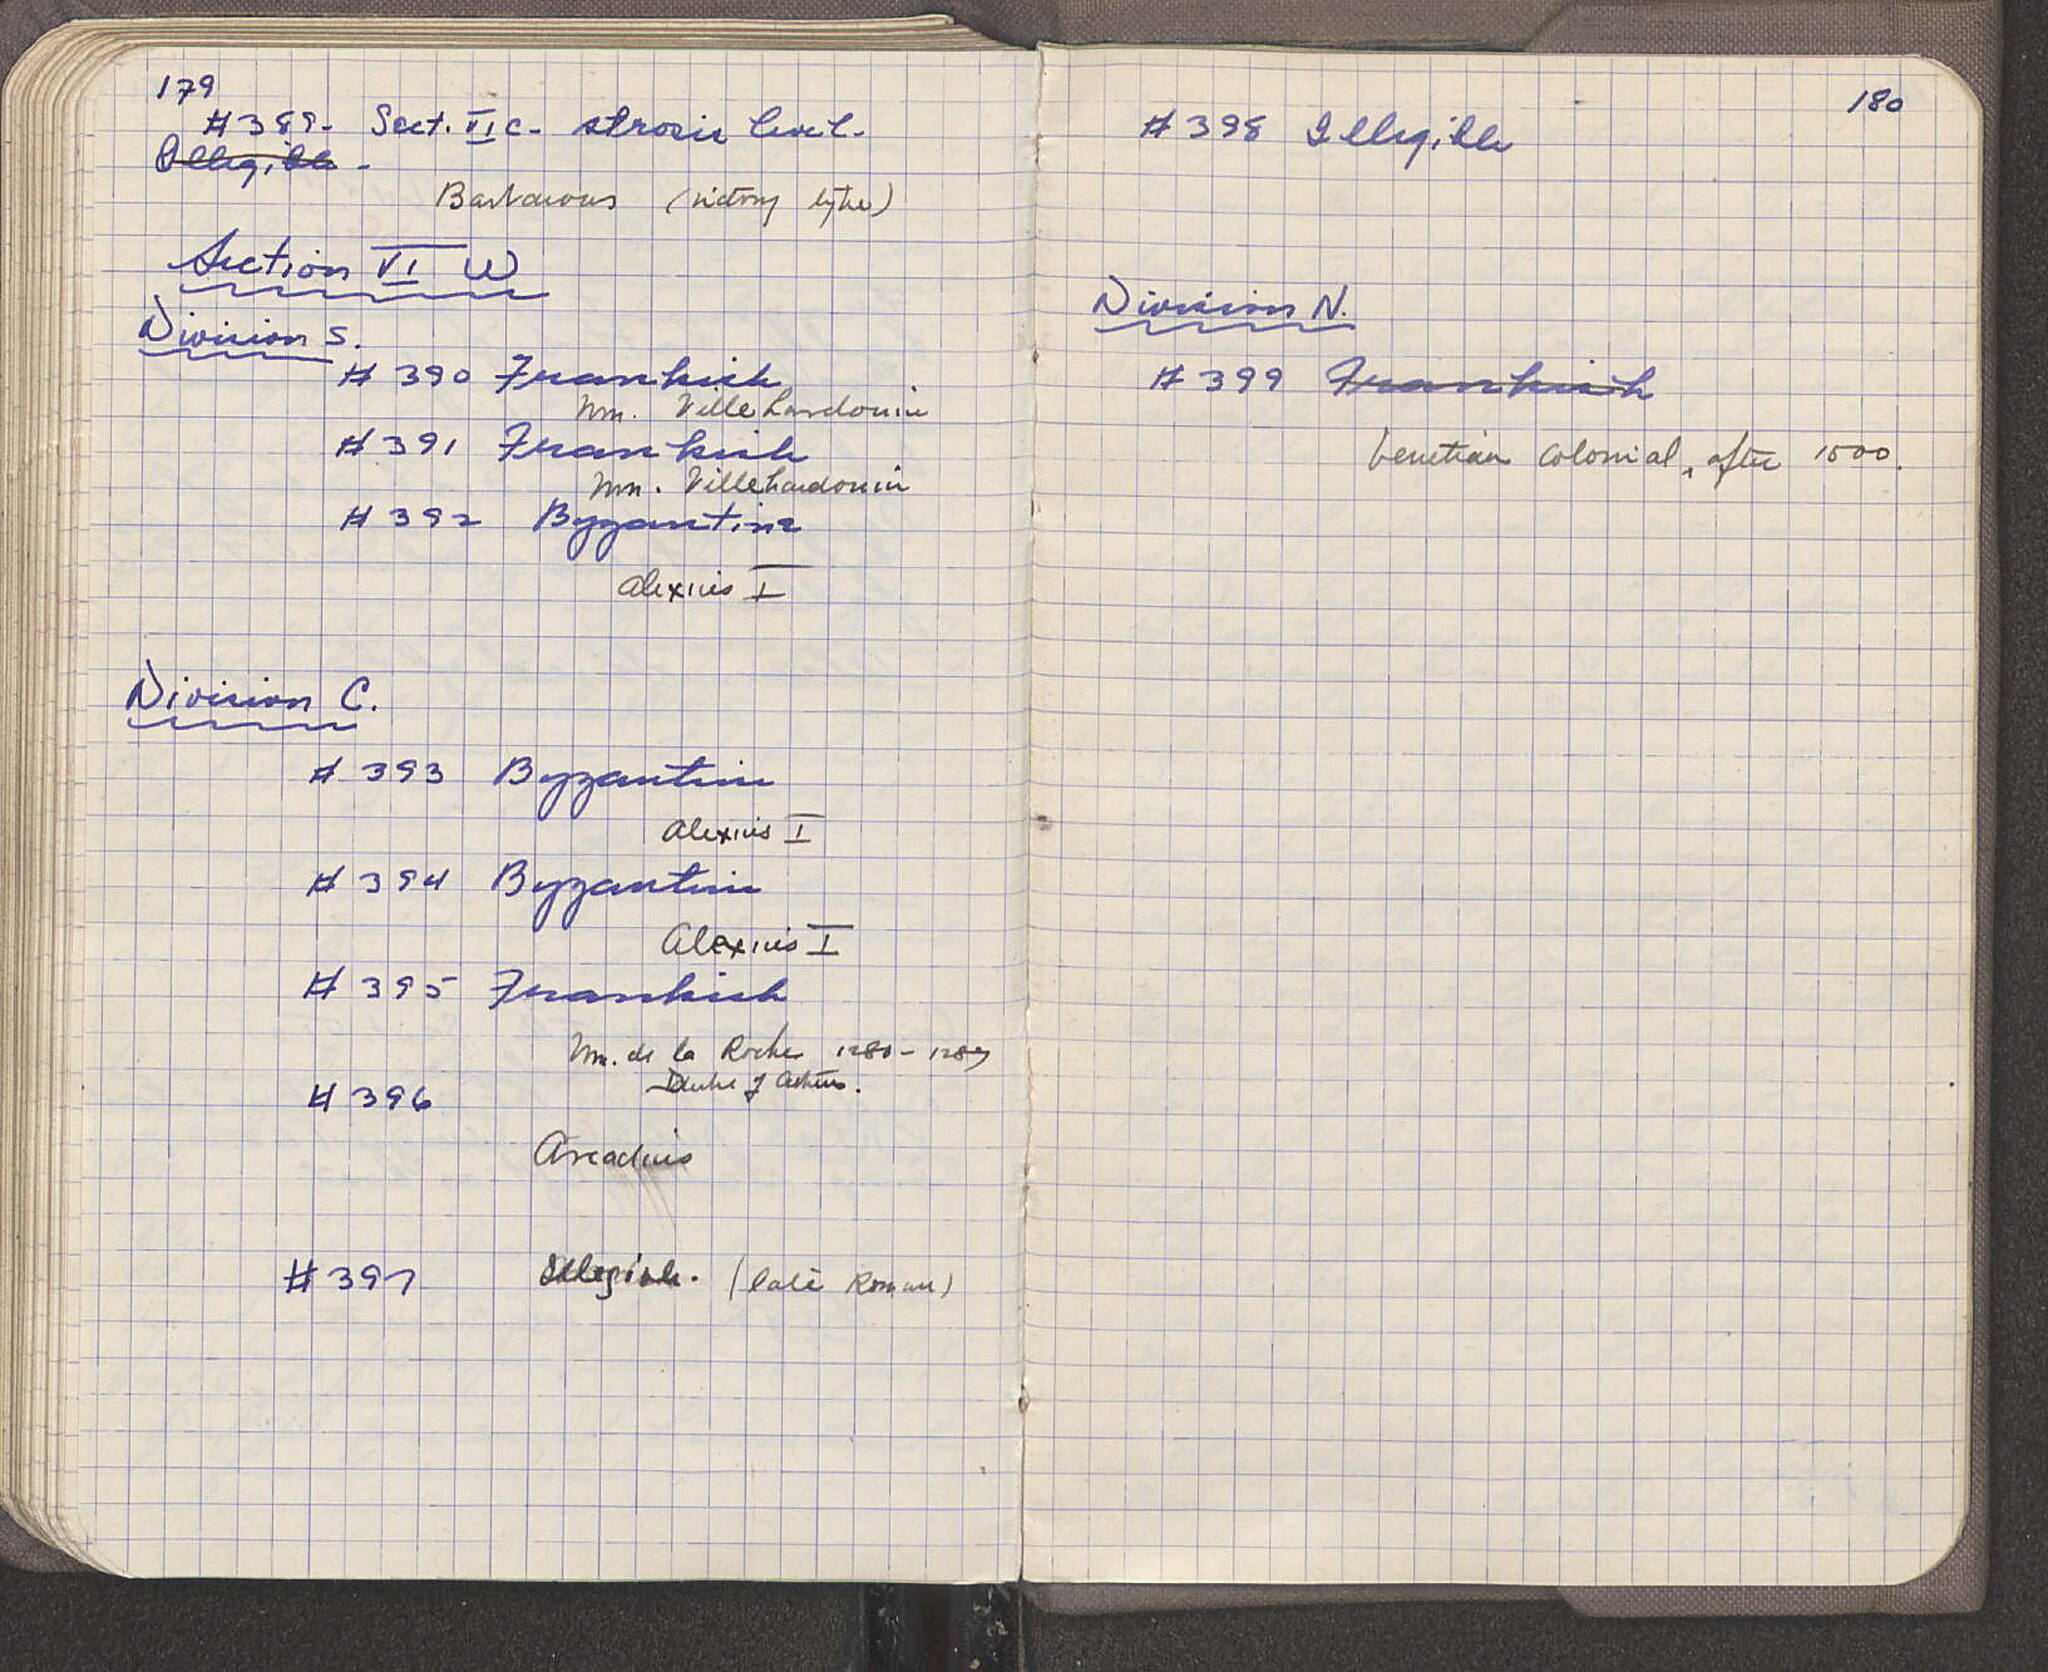 179
#389- Sect. VI c- strosis level.
Illegible -
Barbarous (victory type)
Section VI W
Division S.
#390 Frankish
Wm. Villehardouin
#391 Frankish
Wm. Villehardouin
#392 Byzantine
Alexius I
Division C.
#393 Byzantine
Alexius I
#394 Byzantine
Alexius I
#395 Frankish
Wm. de la Roche 1280-1287
Duke of Athens.
#396
Arcadius
#397 Illegible. (late Roman)
180
#398 Illegible
Division N.
#399 Frankish
Venetian Colonial, after 1500.